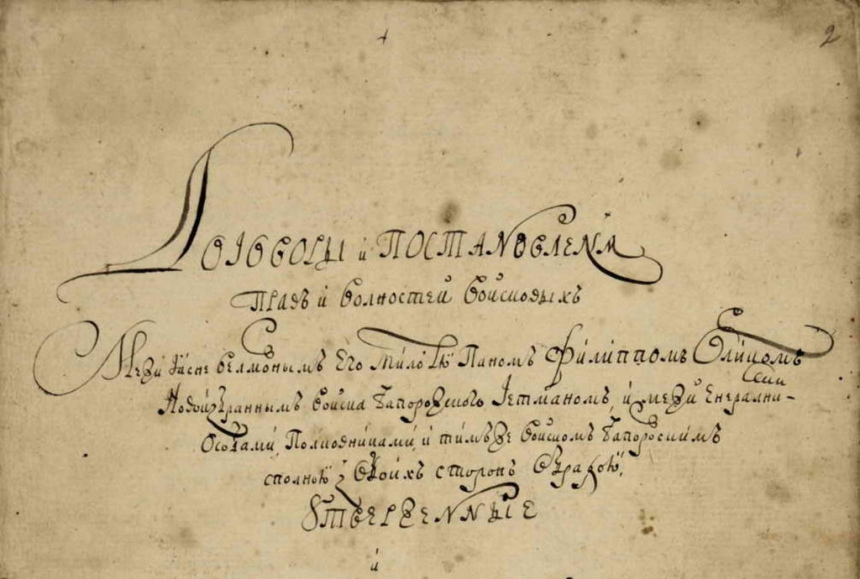 2
Договоры и Постановленя
Правъ и волностей войсковыхъ
Межи Ясне велможнымъ Его Милостю Паномъ Филиппомъ Орликомъ
Новоизбраннымъ войска Запорожского Гетманомъ, и межи Енералними
Особами, Полковниками, и тимъже войскомъ Запорожскимъ
сполною з обоихъ сторонъ обрадою,
Утверженные
и